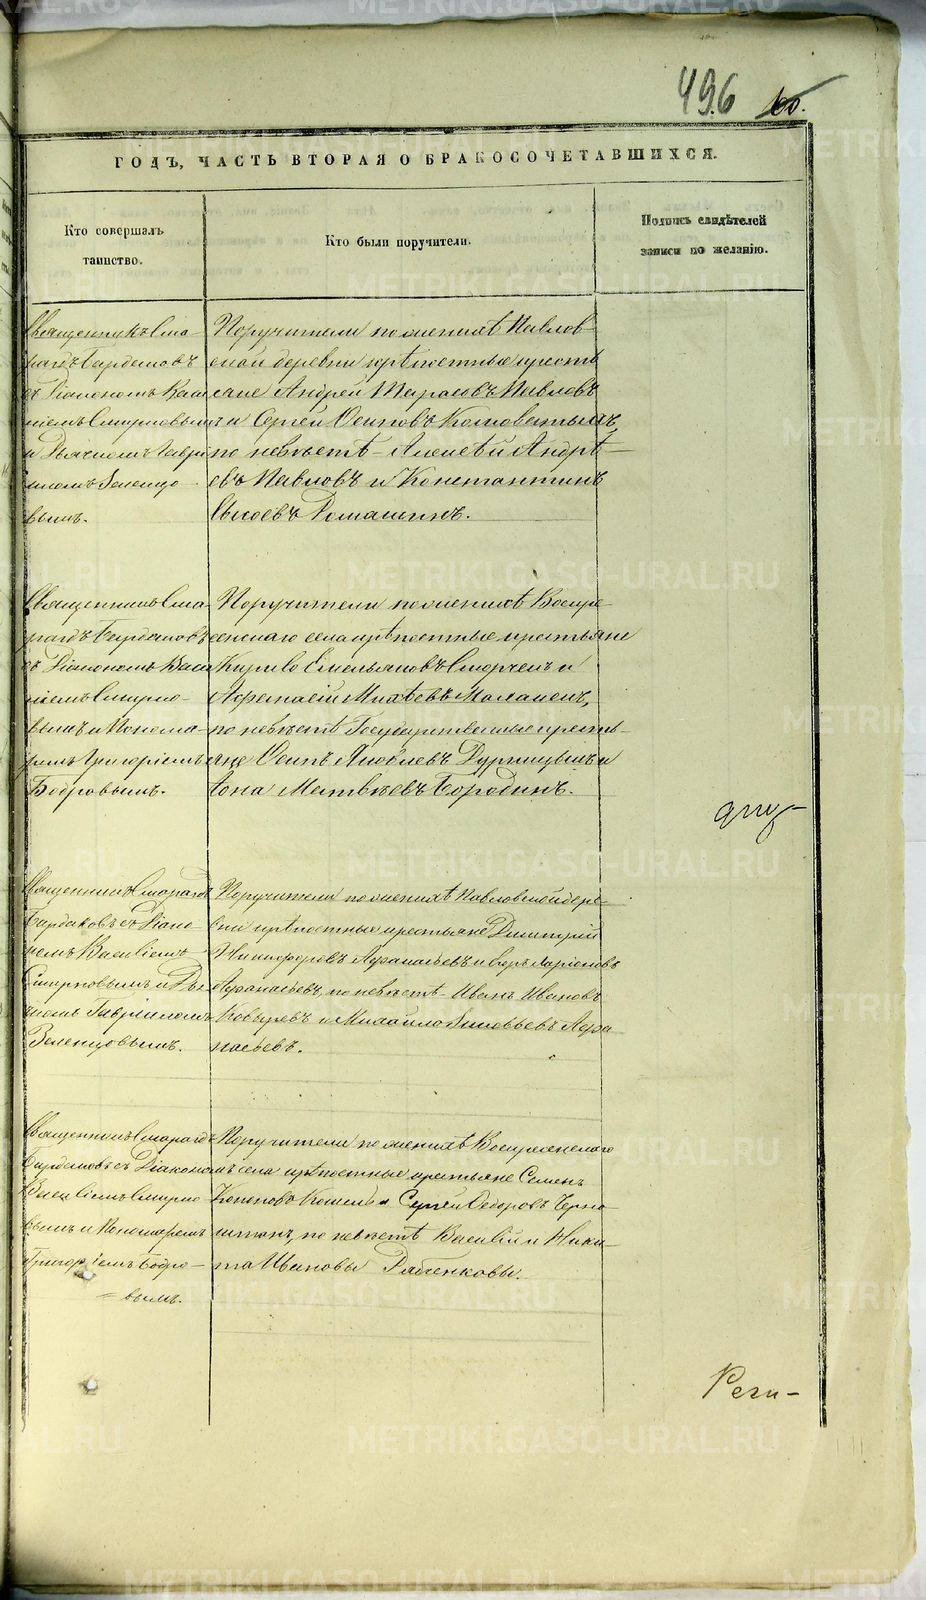 496
60.
ГОДЪ, ЧАСТЬ ВТОРАЯ О БРАКОСОЧЕТАВШИХСЯ.
Кто совершалъ
таинство.
Кто были поручители.
Подпись свидѣтелей
записи по желанію.
Священникъ Сма-
рагдъ
съ Діакономъ Васи
ліемъ Смирновымъ
и Дьячкомъ Гаврі
иломъ Зеленцо-
вымъ.
Поручители по женихѣ Павлов-
ской деревни крѣпостные кресть
яне Андрей Тарасовъ Павловъ
и Сергѣй Осиповъ
по невѣстѣ - Алексѣй Андрѣ-
евъ Павловъ и Константинъ
Сысоевъ Ромашкинъ.
Священникъ Сма-
рагдъ
съ Діакономъ Васи
ліемъ Смирно-
вымъ и Понома-
ремъ Григоріемъ
Бобровымъ.
Поручители по женихѣ Воскре-
сенскаго села крѣпостные крестьяне
Кирило Емельяновъ и
Афанасій Михѣевъ
по невѣстѣ Государственные кресть-
яне Осипъ Яковлевъ и
Іона Матвѣевъ Бородинъ.
Священникъ Смарагдъ
съ Діако-
номъ Василіемъ
Смирновымъ и Дья
чкомъ Гавріиломъ
Зеленцовымъ.
Поручители по женихѣ Павловской дере-
вни крѣпостные крестьяне Дмитрій
Никифоровъ Афанасьевъ и Ларіоновъ
Афанасьевъ, по невѣстѣ - Иванъ Ивановъ
Ковыревъ и Михайло Зиновьевъ Афа-
насьевъ.
Священникъ Смарагдъ
съ Діакономъ
Василіемъ Смирно-
вымъ и Пономаремъ
Григоріемъ Бобро-
вымъ.
Поручители по женихѣ Воскресенскаго
села крѣпостные крестьяне Семенъ
и Сергѣй Ѳедоровъ
по невѣстѣ Василій и Ники-
та Ивановы Рябченковы.
Реги-
METRIKI.GASO-URAL.RU